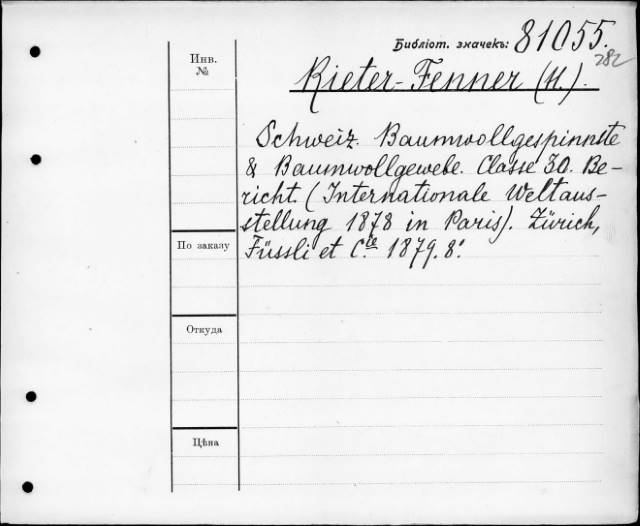 Библіот. значекъ: 81055.
282
Инв.
№
Rieter-Fenner (H.).
Schweiz. Baumwollgespinnste
& Baumwollgewebe. Classe 30. Be-
richt. (Internationale Weltaus-
stellung 1878 in Paris). Zürich,
Füssli et Cie 1879. 8°.
По заказу
Откуда
Цѣна